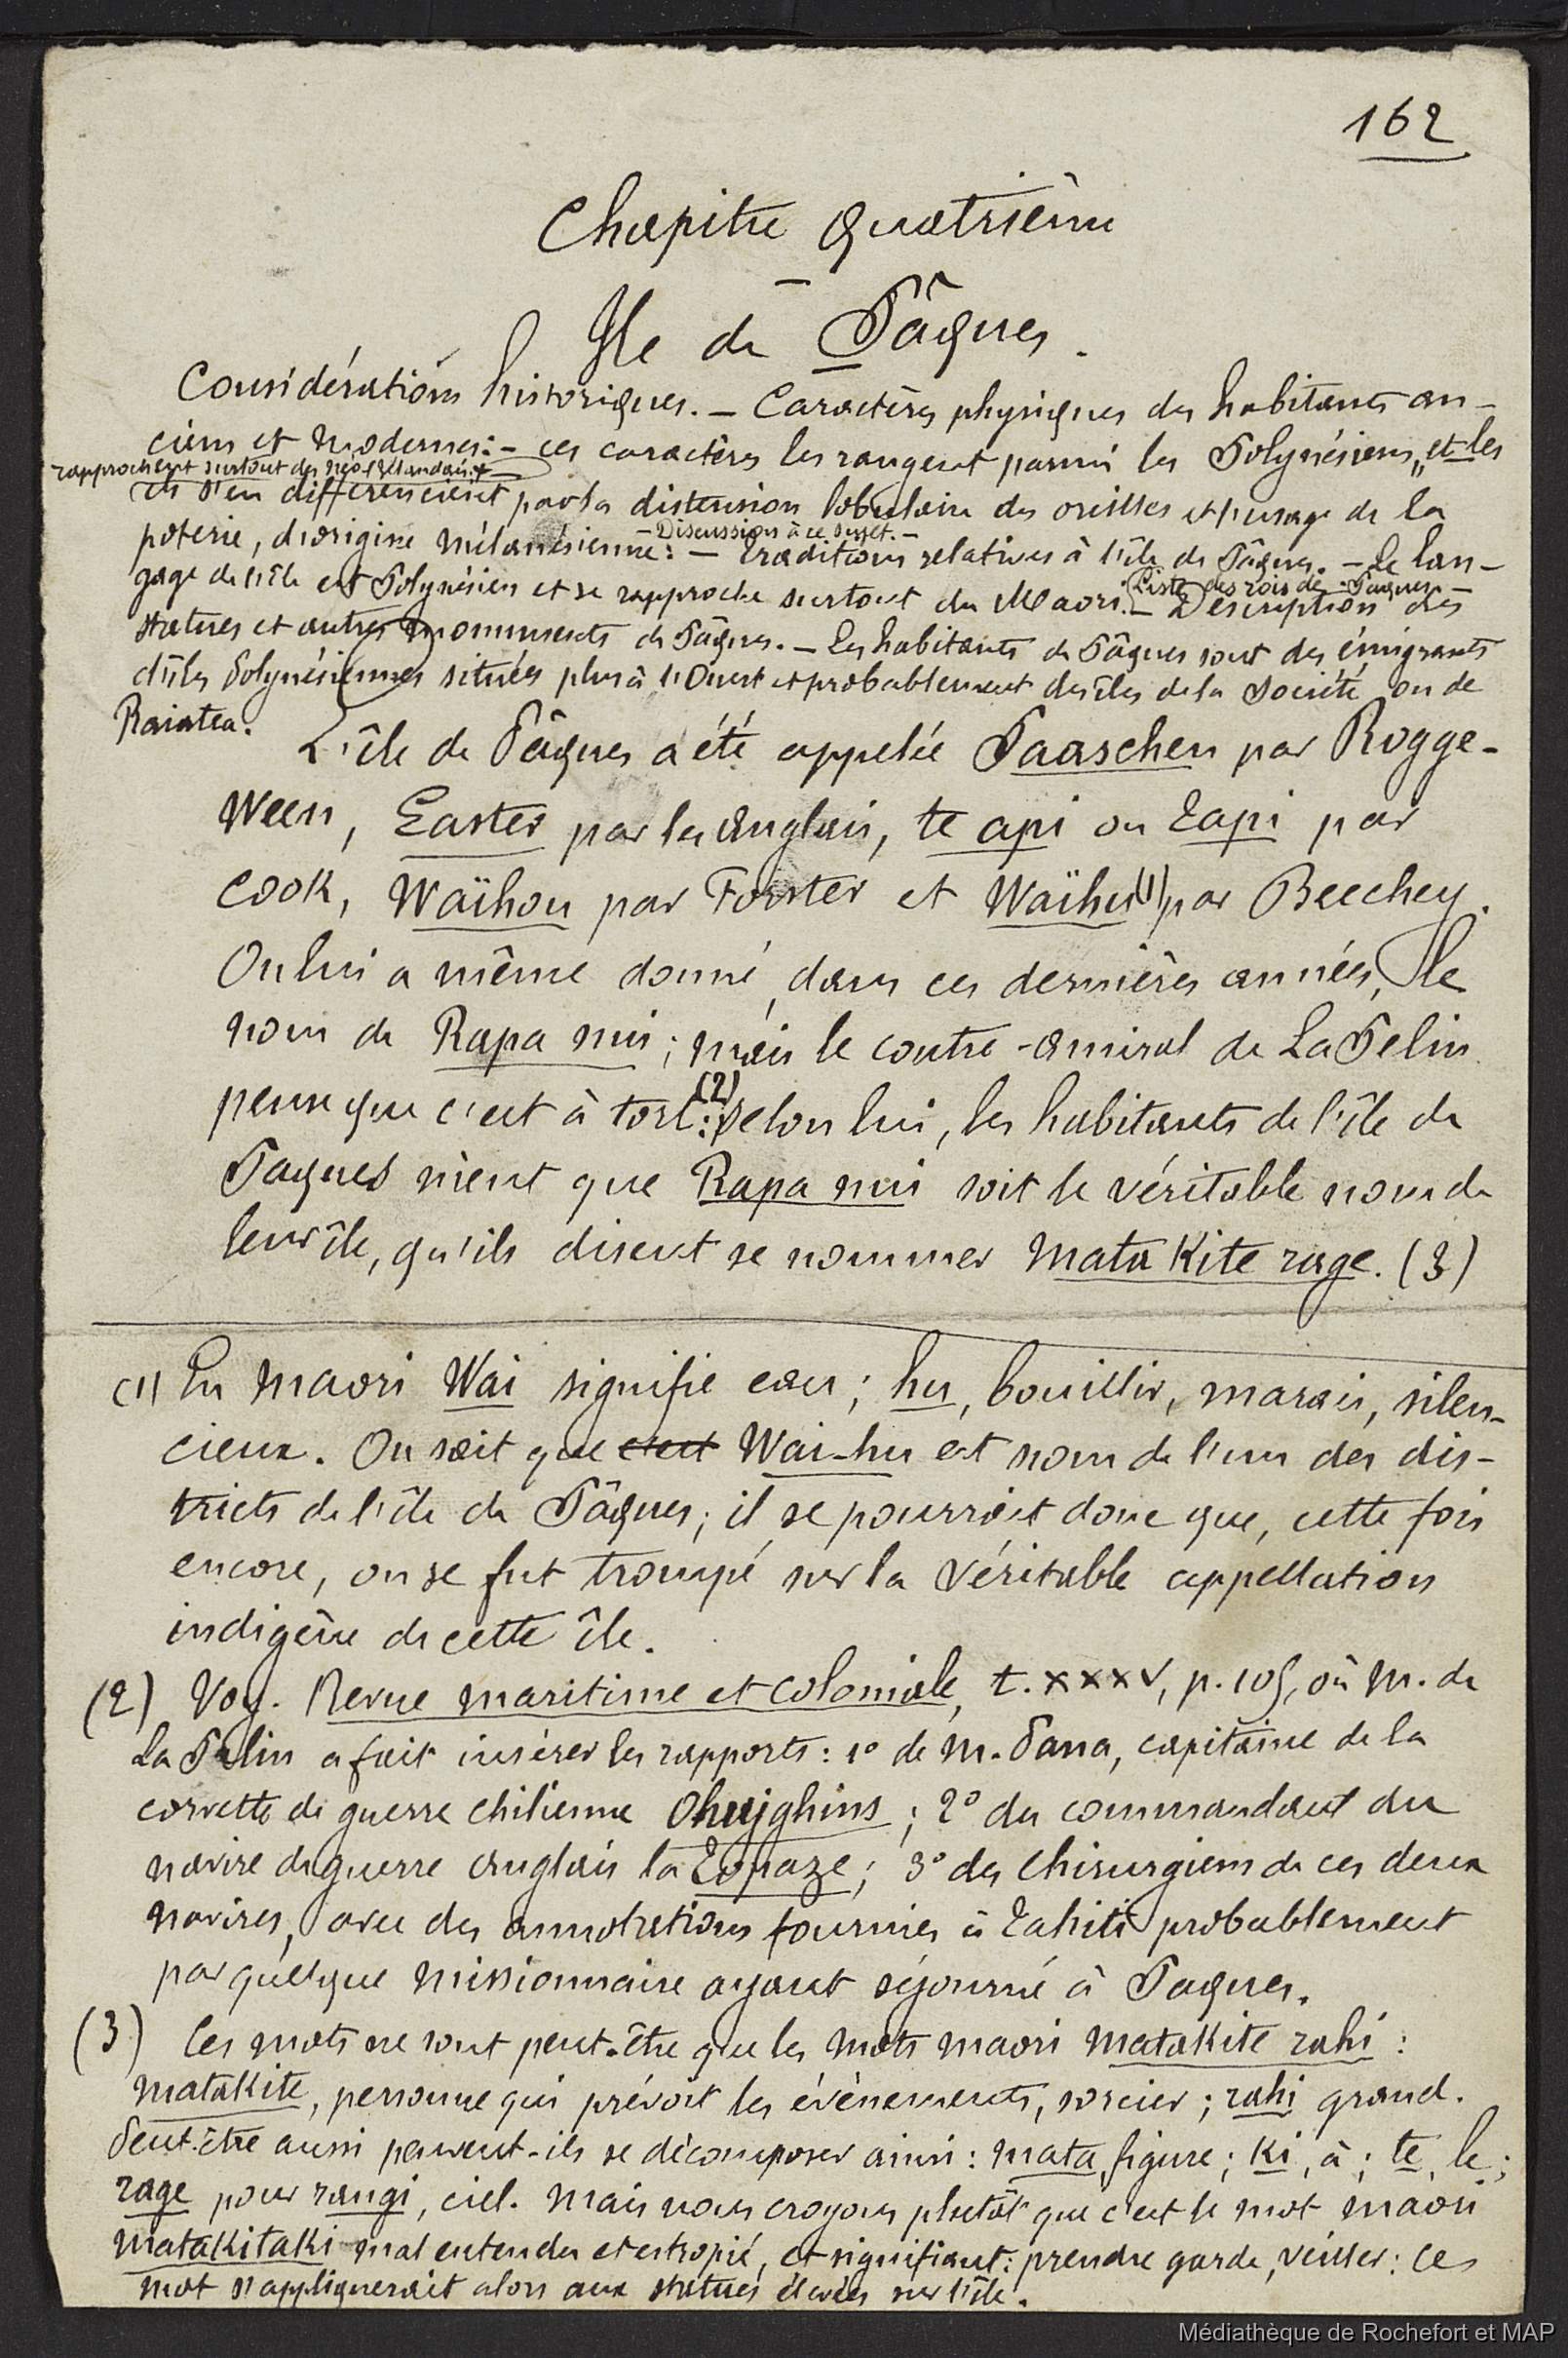 162
Chapitre quatrième
Ile de Pâques.
Considérations historiques. — Caractères physiques des habitants an-
ciens et modernes: — ces caractères les rangent parmi les Polynésiens, et les
rapprochent surtout des Néo-Zélandais;
ils s'en différencient par la distension lobulaire des oreilles et l'usage de la
— Discussion à ce sujet. —
poterie, d'origine mélanésienne: — Traditions relatives à l'île de Pâques. — Le lan-
Liste des rois de Pâques —
gage de l'île est Polynésien et se rapproche surtout du Maori. — Description des
statues et autres monuments de Pâques. — Les habitants de Pâques sont des émigrants
d'îles Polynésiennes situées plus à l'Ouest et probablement des îles de la Société ou de
Raiatea.
L'île de Pâques a été appelée Paaschen par Rogge-
ween, Easter par les Anglais, te api ou Tapi par
Cook, Waïhou par Forster et Waïhu (1) par Beechey.
On lui a même donné, dans ces dernières années, le
nom de Rapa nui; mais le contre-amiral de La Pelin
pense que c'est à tort: (2) selon lui, les habitants de l'île de
Paques nient que Rapa nui soit le véritable nom de
leur île, qu'ils disent se nommer Mata Kite rage. (3)
(1) En Maori Wai signifie eau; hu, bouillir, marais, silen-
cieux. On sait que c'est Wai-hu est nom de l'un des dis-
tricts de l'île de Pâques; il se pourrait donc que, cette fois
encore, on se fut trompé sur la véritable appellation
indigène de cette île.
(2) Voy. Revue maritime et coloniale, t. XXXV, p. 105, où M. de
La Pelin a fait insérer les rapports: 1° de M. Gana, capitaine de la
corvette de guerre chilienne Ohigghins; 2° du commandant du
navire de guerre anglais la Topaze; 3° des chirurgiens de ces deux
navires, avec des annotations fournies à Tahiti probablement
par quelque missionnaire ayant séjourné à Paques.
(3) Ces mots ne sont peut-être que les mots maori matakite rahi:
matakite, personne qui prévoit les évènements, sorcier; rahi grand.
Peut-être aussi peuvent-ils se décomposer ainsi: mata, figure; ki, à; te, le;
rage pour rangi, ciel. Mais nous croyons plutôt que c'est le mot maori
matakitaki mal entendu et estropié, et signifiant: prendre garde, veiller: ces
mot s'appliquerait alors aux statues élevées sur l'île.
Médiathèque de Rochefort et MAP